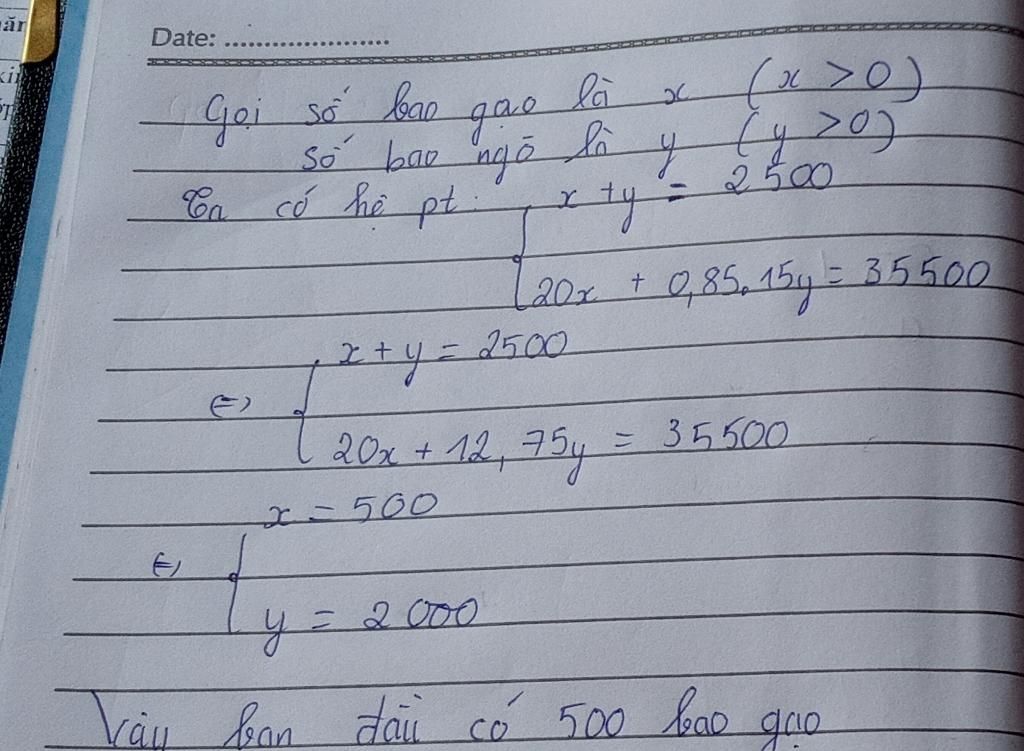 Date: ......................
Gọi số bao gạo là x (x > 0)
số bao ngô là y (y > 0)
Ta có hệ pt: x + y = 2500
20x + 0,85.15y = 35500
⇔ x + y = 2500
20x + 12,75y = 35500
x = 500
⇔
y = 2000
Vậy ban đầu có 500 bao gạo